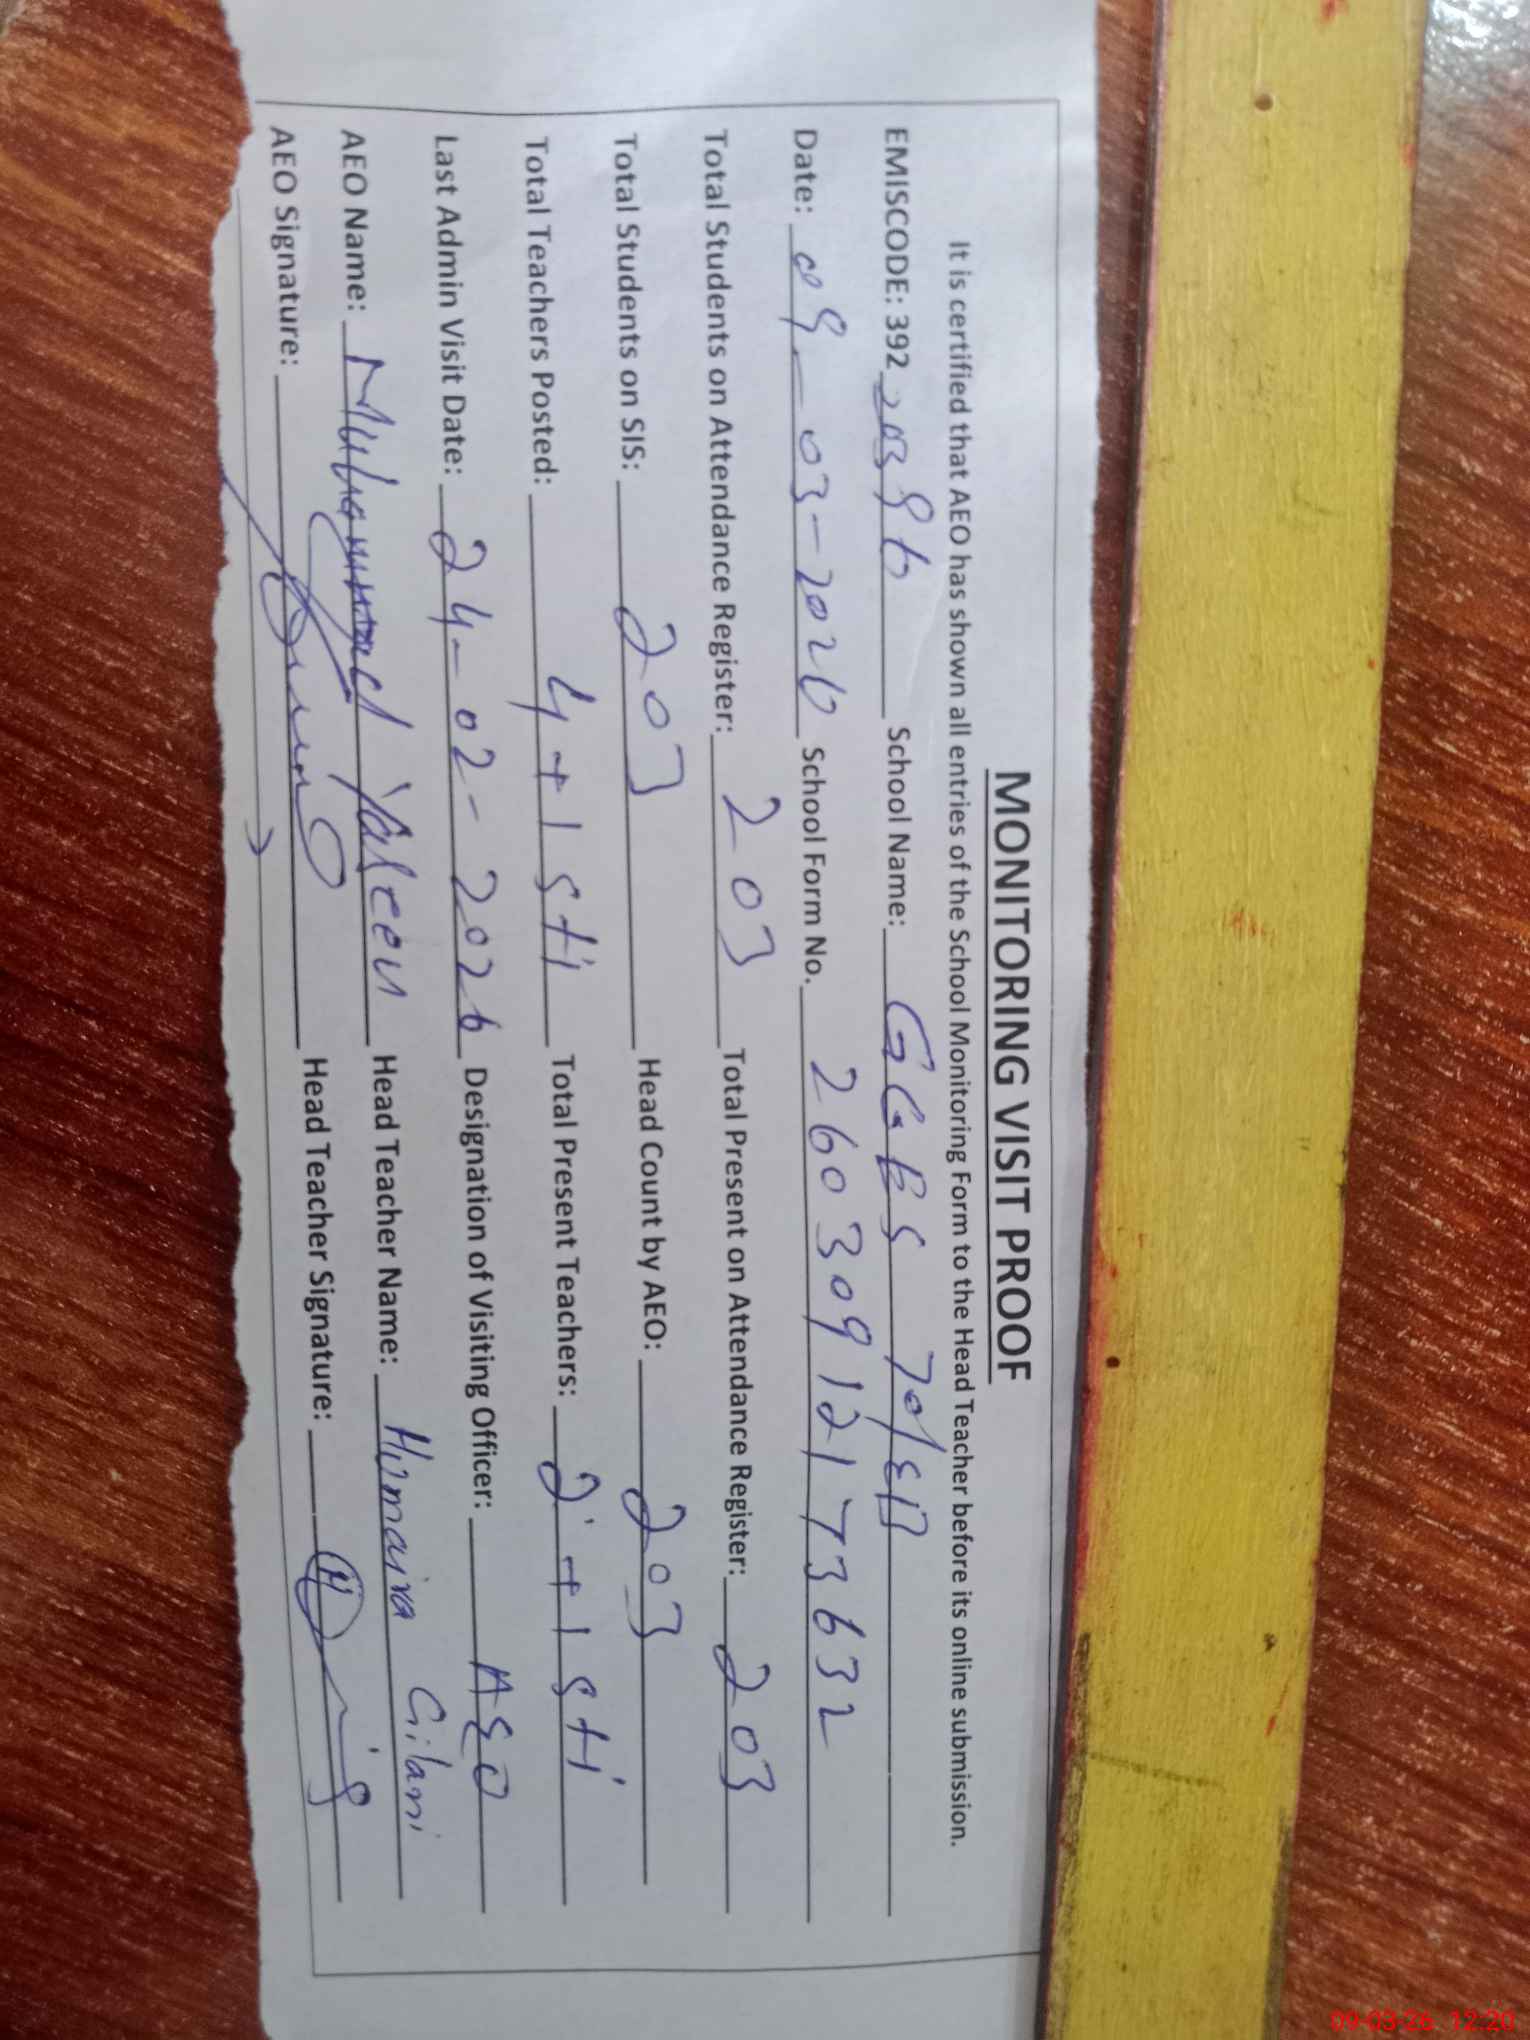 MONITORING VISIT PROOF
It is certified that AEO has shown all entries of the School Monitoring Form to the Head Teacher before its online submission.
EMISCODE: 392 20396 School Name: GGES 70/
Date: 09-03-2026 School Form No. 26030912173632
Total Students on Attendance Register: 203 Total Present on Attendance Register: 203
Total Students on SIS: 203 Head Count by AEO: 203
Total Teachers Posted: 4+1 STI Total Present Teachers: 2+1 STI
Last Admin Visit Date: 24-02-2026 Designation of Visiting Officer: AEO
AEO Name: Muhammad Yaseen Head Teacher Name: Humaira Gilani
AEO Signature: Head Teacher Signature:
09-03-26 12:20